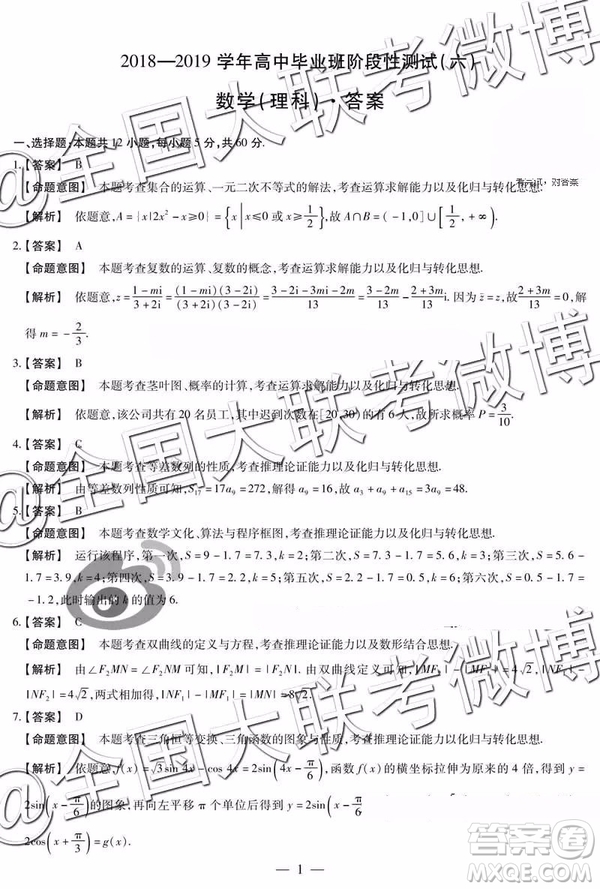 2018—2019 学年高中毕业班阶段性测试(六)
数学(理科)·答案
一、选择题:本题共 12 小题,每小题 5 分,共 60 分.
1.【答案】 B
【命题意图】 本题考查集合的运算、一元二次不等式的解法,考查运算求解能力以及化归与转化思想.
【解析】 依题意,A={x|2x²-x≥0}={x|x≤0 或 x≥1/2},故 A∩B=(-1,0]∪[1/2,+∞).
2.【答案】 A
【命题意图】 本题考查复数的运算、复数的概念,考查运算求解能力以及化归与转化思想.
【解析】 依题意,z=(1-mi)/(3+2i)=(1-mi)(3-2i)/(3+2i)(3-2i)=(3-2i-3mi-2m)/13=(3-2m)/13-(2+3m)/13 i.因为 z=z̄,故 (2+3m)/13=0,解
得 m=-2/3.
3.【答案】 B
【命题意图】 本题考查茎叶图、概率的计算,考查运算求解能力以及化归与转化思想.
【解析】 依题意,该公司共有 20 名员工,其中迟到次数在[20,30)的有 6 人,故所求概率 P=3/10.
4.【答案】 C
【命题意图】 本题考查等差数列的性质,考查推理论证能力以及化归与转化思想.
【解析】 由等差数列性质可知,S₁₇=17a₉=272,解得 a₉=16,故 a₃+a₉+a₁₅=3a₉=48.
5.【答案】 B
【命题意图】 本题考查数学文化、算法与程序框图,考查推理论证能力以及化归与转化思想.
【解析】 运行该程序,第一次,S=9-1.7=7.3,k=2;第二次,S=7.3-1.7=5.6,k=3;第三次,S=5.6-
1.7=3.9,k=4;第四次,S=3.9-1.7=2.2,k=5;第五次,S=2.2-1.7=0.5,k=6;第六次,S=0.5-1.7=
-1.2,此时输出的 k 的值为 6.
6.【答案】 C
【命题意图】 本题考查双曲线的定义与方程,考查推理论证能力以及数形结合思想.
【解析】 由∠F₂MN=∠F₂NM 可知,|F₂M|=|F₂N|.由双曲线定义可知,|MF₂|-|MF₁|=4√2,|NF₁|-
|NF₂|=4√2,两式相加得,|NF₁|-|MF₁|=|MN|=8√2.
7.【答案】 D
【命题意图】 本题考查三角恒等变换、三角函数的图象与性质,考查推理论证能力以及化归与转化思想.
【解析】 依题意,f(x)=√3sin 4x-cos 4x=2sin(4x-π/6),函数 f(x)的横坐标拉伸为原来的 4 倍,得到 y=
2sin(x-π/6)的图象,再向左平移 π 个单位后得到 y=
2cos(x+π/3)=g(x).
— 1 —
@全国大联考微博
@全国大联考微博
@全国大联考微博
答案圈